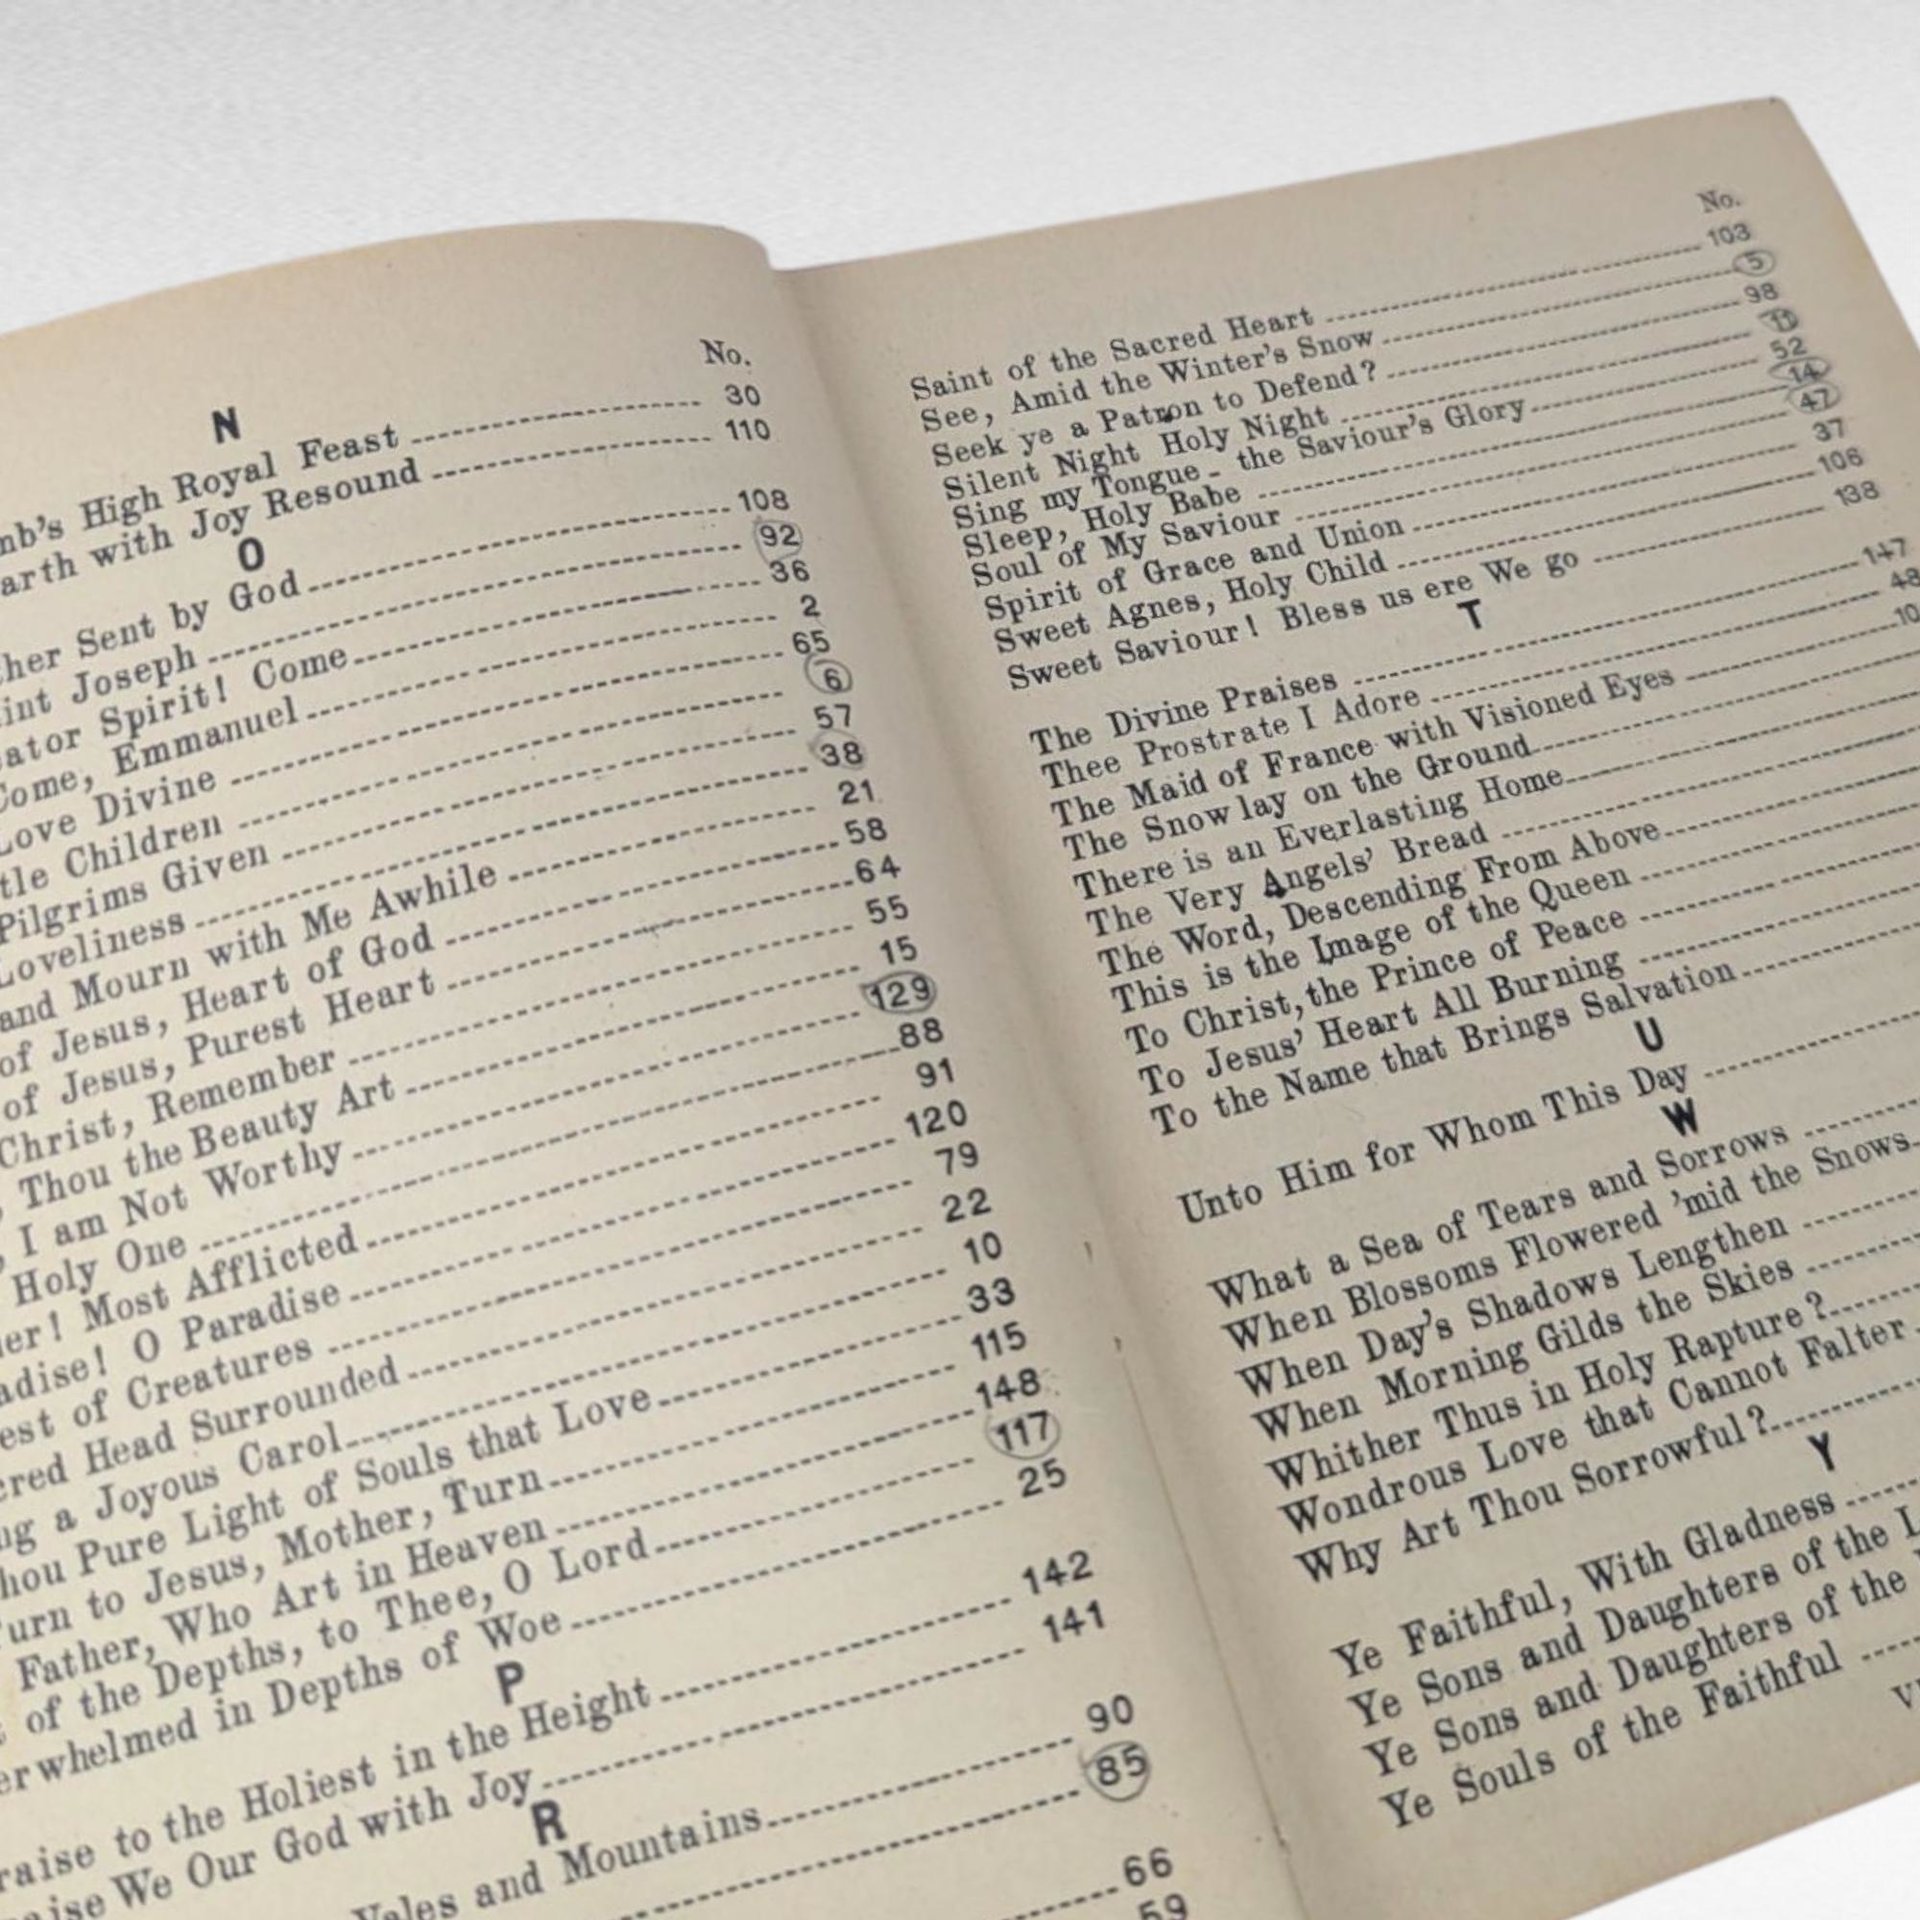 No.
N
High Royal Feast 30
with Joy Resound 110
O
Sent by God 108
Joseph 92
Spirit! Come 36
Come, Emmanuel 2
Love Divine 65
Children 6
Pilgrims Given 57
Loveliness 38
and Mourn with Me Awhile 21
of Jesus, Heart of God 58
of Jesus, Purest Heart 64
Christ, Remember 55
Thou the Beauty Art 15
I am Not Worthy 129
Holy One 88
Most Afflicted 91
O Paradise 120
of Creatures 79
Head Surrounded 22
a Joyous Carol 10
Pure Light of Souls that Love 33
to Jesus, Mother, Turn 115
Father, Who Art in Heaven 148
of the Depths, to Thee, O Lord 117
in Depths of Woe 25
P
to the Holiest in the Height 142
We Our God with Joy 141
R
Vales and Mountains 90
85
66
59
No.
Saint of the Sacred Heart 103
See, Amid the Winter's Snow 5
Seek ye a Patron to Defend? 98
Silent Night Holy Night 11
Sing my Tongue - the Saviour's Glory 52
Sleep, Holy Babe 14
Soul of My Saviour 47
Spirit of Grace and Union 37
Sweet Agnes, Holy Child 106
Sweet Saviour! Bless us ere We go 138
T
The Divine Praises 147
Thee Prostrate I Adore 48
The Maid of France with Visioned Eyes
The Snow lay on the Ground
There is an Everlasting Home
The Very Angels' Bread
The Word, Descending From Above
This is the Image of the Queen
To Christ, the Prince of Peace
To Jesus' Heart All Burning
To the Name that Brings Salvation
U
Unto Him for Whom This Day
W
What a Sea of Tears and Sorrows
When Blossoms Flowered 'mid the Snows
When Day's Shadows Lengthen
When Morning Gilds the Skies
Whither Thus in Holy Rapture?
Wondrous Love that Cannot Falter
Why Art Thou Sorrowful?
Y
Ye Faithful, With Gladness
Ye Sons and Daughters of the
Ye Sons and Daughters of the
Ye Souls of the Faithful